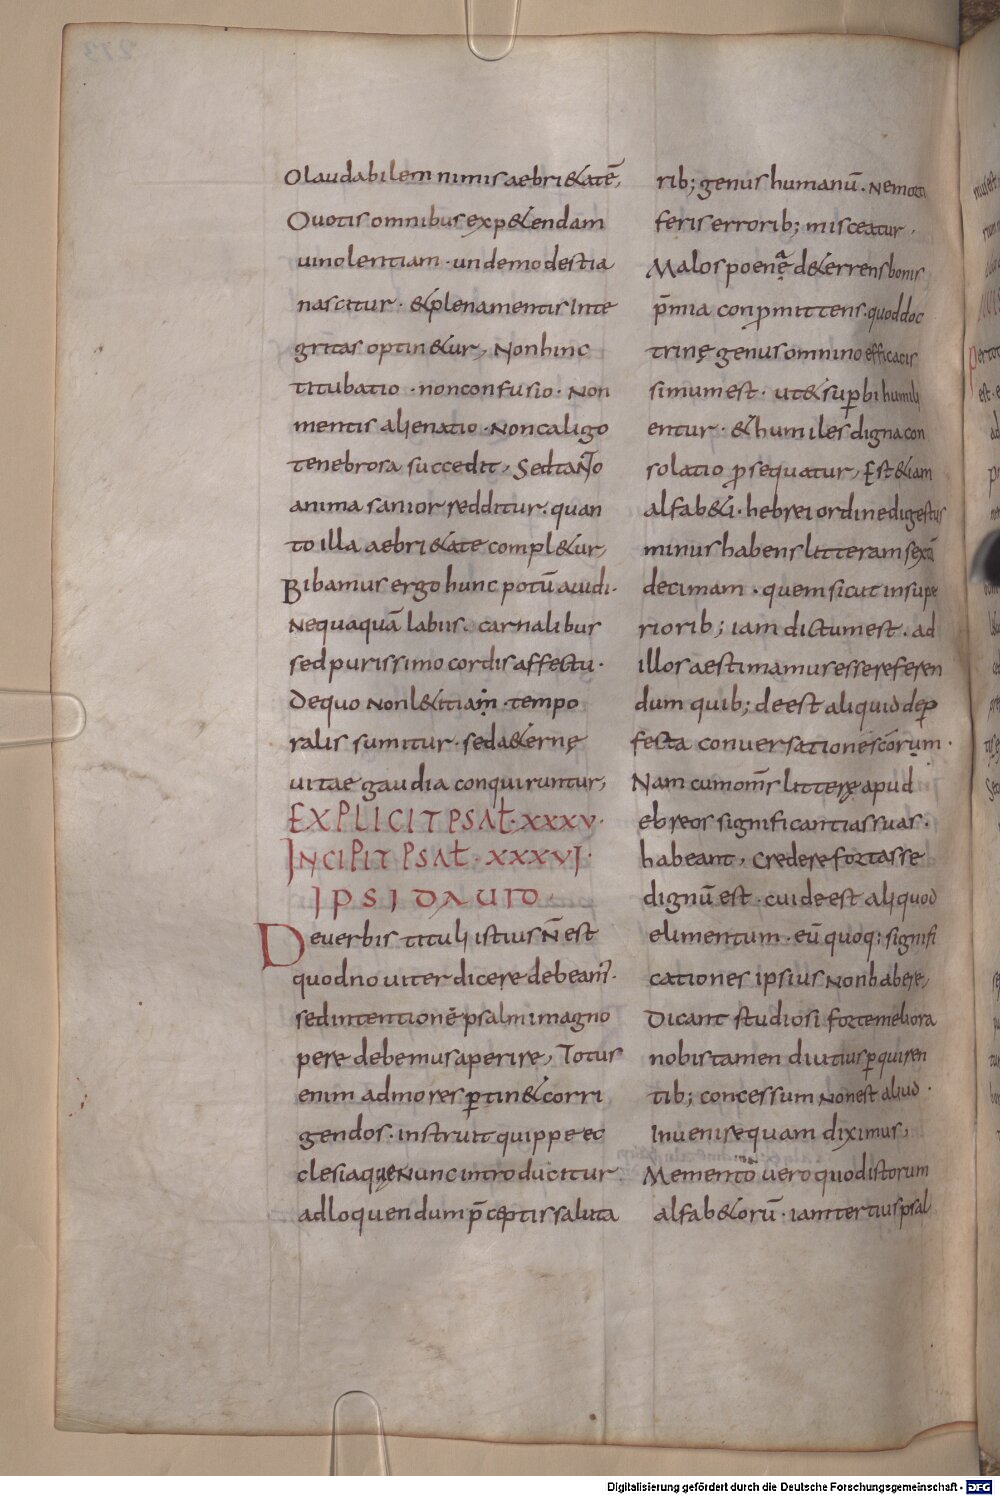 O laudabilem nimis aebri&atē,
O uotis omnibus exp&endam
uinolentiam · unde modestia
nascitur · & plena mentis inte
gritas optin&ur, Non hinc
titubatio · non confusio · Non
mentis alienatio · Non caligo
tenebrosa succedit, Sed tanto
anima sanior redditur · quan
to illa aebri&ate compl&ur,
Bibamus ergo hunc potū auidi ·
Nequaquā labiis · carnalibus
sed purissimo cordis affectu ·
De quo Non l&itia · tempo
ralis sumitur · sed a&ernę
uitae gaudia conquiruntur,
EXPLICIT PSAL̄ · XXXV ·
INCIPIT PSAL̄ · XXXVI ·
IPSI DAUID ·
De uerbis tituli istius N̄ est
quod nouiter dicere debeam ·
sed intentionē psalmi magno
pere debemus aperire, Totus
enim ad mores ꝑtin& corri
gendos · instruit quippe ec
clesia que Nunc introducitur
ad loquendum p̄ceptis saluta
rib; genus humanū · Nemorti
feris errorib; misceatur ·
Malos poenę d&errens bonis
p̄mia conpmittens · quod doc
trinę genus omnino efficacis
simum est · ut & suꝑbi humili
entur · & humiles digna con
solatio ꝓsequatur, Est &iam
alfab&i · hebrei ordine digestus
minus habens litteram sextā
decimam · quem sicut in supe
riorib; iam dictum est · ad
illos aestimamus esse referen
dum quib; deest aliquid de ꝑ
fecta conuersatione scōrum ·
Nam cum om̄s litterę apud
ebreos significantias suas ·
habeant, credere fortasse
dignū est · cui deest aliquod
elimentum · eū quoq; signifi
cationes ipsius Non habere,
Dicant studiosi forte meliora
nobis tamen diutius ꝑquiren
tib; concessum Non est aliud ·
Inuenire quam diximus,
Memento uero quod istorum
alfab&orū · iam tertius psal